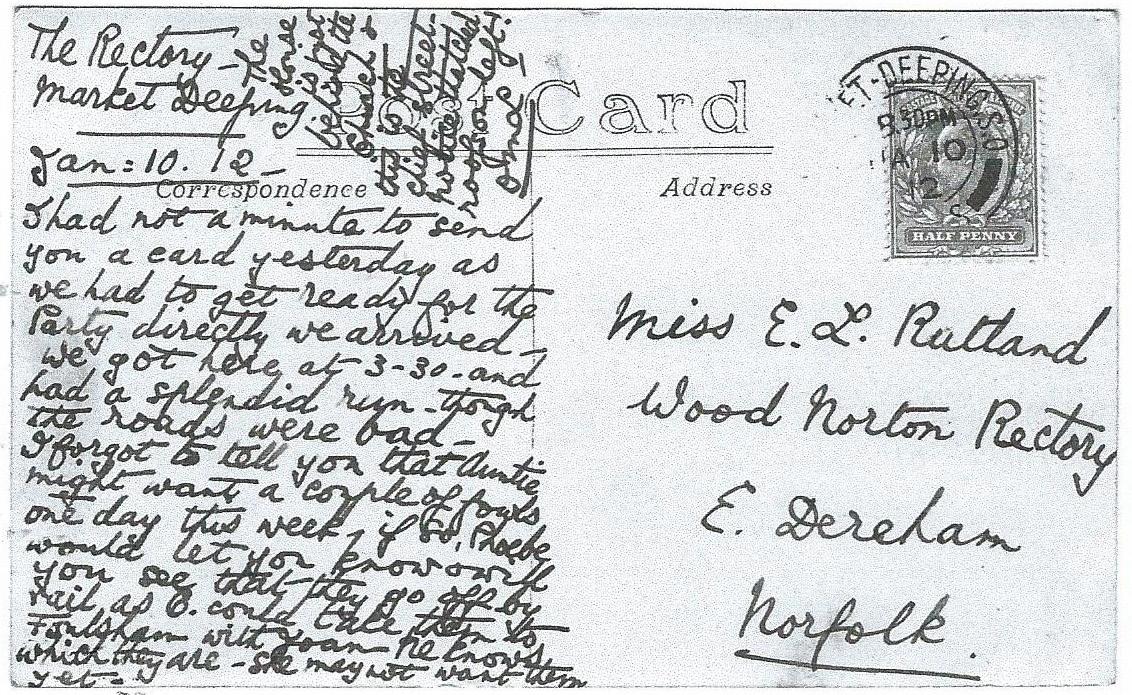 The Rectory -
Market Deeping
Jan: 10. 12 -
The
House
is just
behind the
Church &
this is the
chief street.
notice thatched
roofs on left.
Post Card
Correspondence
Address
I had not a minute to send
you a card yesterday as
we had to get ready for the
Party directly we arrived -
we got here at 3-30 - and
had a splendid run - though
the roads were bad -
I forgot to tell you that Auntie
might want a couple of fowls
one day this week, if so, Phoebe
would let you know & will
you see that they go off by
rail as O. could take them to
Foulsham with Joan - he knows
which they are - she may not want them
yet -
ET-DEEPING.S.O
8.30PM
JA 10
12
HALF PENNY
Miss E. L. Rutland
Wood Norton Rectory
E. Dereham
Norfolk.